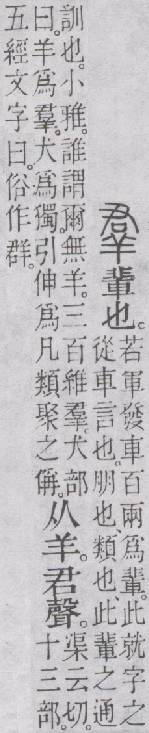 羣 輩也。
若軍發車百兩爲輩。此就字之
從車言也。朋也、類也、此輩之通
訓也。小雅。誰謂爾無羊。三百維羣。犬部
曰。羊爲羣。犬爲獨。引伸爲凡類聚之偁。
从羊。君聲。
渠云切。
十三部。
五經文字曰。俗作群。